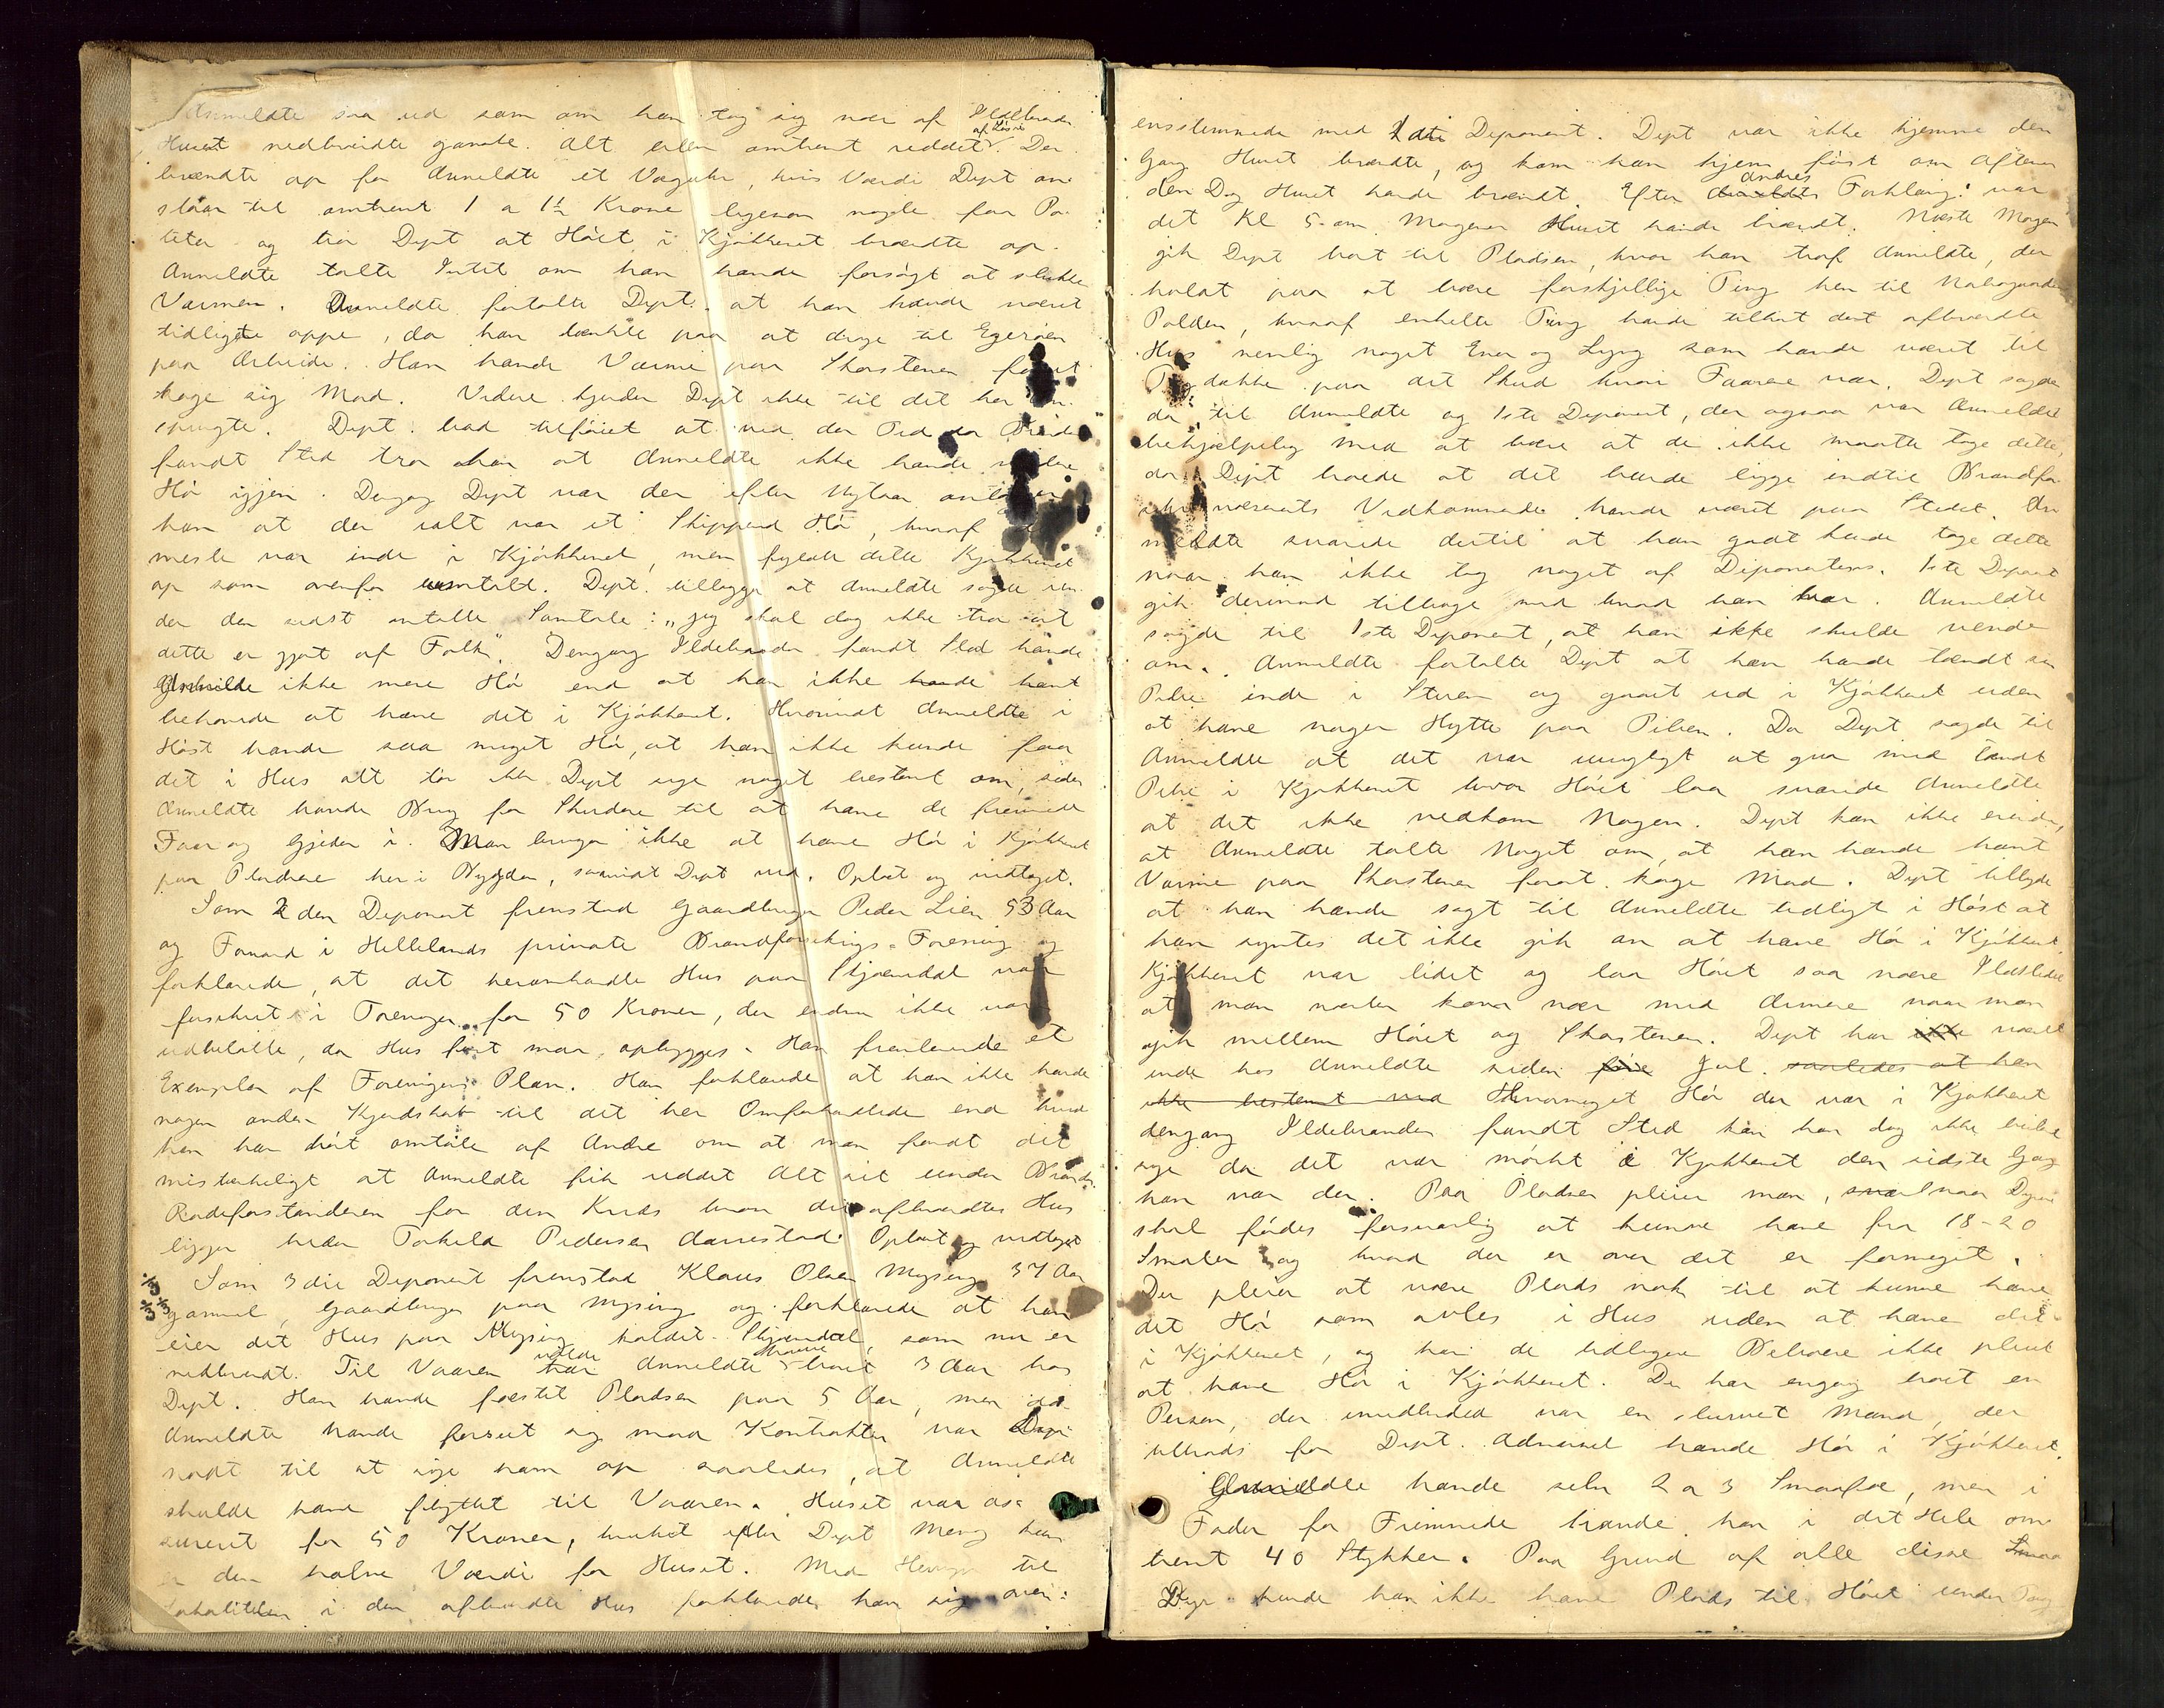 Anmeldte saa ud som om han tog sig nær af Ildebranden
Huset nedbrændte ganske. Alt eller omtrent reddet af Løsøre. Der
brændte op for Anmeldte et Væguhr, hvis Værdi Dept an-
slaar til omtrent 1 a 1½ Krone ligesom nogle faa Po-
teter og tror Dept at Høiet i Kjøkkenet brændte op.
Anmeldte talte Intet om han havde forsøgt at slukke
Varmen. Anmeldte fortalte Dept. at han havde været
tidligt oppe, da han tænkte paa at drage til Egerøen
paa Arbeide. Han havde Varme paa Skorstenen for at
koge sig Mad. Videre kjender Dept ikke til det her
spurgte. Dept. bad tilføiet at ved den Tid da Branden
fandt Sted tror han at Anmeldte ikke havde
Hø igjen. Dengang Dept var der efter Nytaar antager
han at der ialt var et Skippund Hø, hvoraf det
meste var inde i Kjøkkenet, men fyldte dette Kjøkkenet
op som ovenfor omtalt. Dept. tillægger at Anmeldte sagde un-
der den sidst omtalte Samtale: "jeg skal dog ikke tro at
dette er gjort af Folk". Dengang Ildebranden fandt Sted havde
Anmeldte ikke mere Hø end at han ikke havde havt
behovede at have det i Kjøkkenet. Hvorvidt Anmeldte i
Høst havde saa meget Hø, at han ikke kunde faa
det i Hus alt tør ikke Dept sige noget bestemt om, siden
Anmeldte havde Brug for Skudene til at have de fremmede
Faar og Gjeder i. Man bruger ikke at have Hø i Kjøkkenet
paa Pladsene her i Bygden, saavidt Dept ved. Oplæst og vedtaget.
Som 2den Deponent fremstod Gaardbruger Peder Lien 53 Aar
og Formand i Hellelands private Brandforsikrings-Forening og
forklarede, at det heromhandlede Hus paa Skjævedal var
forsikret i Foreningen for 50 Kroner, der endnu ikke var
udbetalte, da Hus først maa opbygges. Han fremlagde et
Exemplar af Foreningens Plan. Han forklarede at han ikke havde
nogen anden Kjendskab til det her Omforhandlede end hvad
han har hørt omtale af Andre om at man fandt det
mistænkeligt at Anmeldte fik reddet Alt sit under Branden.
Rodeforstanderen for den Kreds hvor det afbrændte Hus
ligger heder Torkild Pedersen Aarrestad. Oplæst og vedtaget
Som 3die Deponent fremstod Klaus Olsen Mysing 37 Aar
gammel, Gaardbruger paa Mysing og forklarede at han
eier det Hus paa Mysing kaldet Skjævedal, som nu er
nedbrændt. Til Vaaren vilde Anmeldte have boet 3 Aar hos
Dept. Han havde fæstet Pladsen paa 5 Aar, men da
Anmeldte havde forseet sig mod Kontrakten var Dept
nødt til at sige ham op saaledes, at Anmeldte
skulde have flyttet til Vaaren. Huset var as-
sureret for 50 Kroner, hvilket efter Dept Mening kun
er den halve Værdi for Huset. Med Hensyn til
Lokaliteten i den afbrændte Hus forklarede han sig over-
ensstemmede med 1ste Deponent. Dept var ikke hjemme den
Gang Huset brændte, og kom han hjem først om Aftenen
den Dag Huset havde brændt. Efter Andres Forklaring var
det Kl 5 om Morgenen Huset havde brændt. Næste Morgen
gik Dept bort til Pladsen, hvor han traf Anmeldte, der
holdt paa at bære forskjellige Ting hen til Nabogaarden
Polden, hvoraf enkelte Ting havde tilhørt det afbrændte
Hus nemlig noget Ener og Lyng som havde været til
Tagdække paa det Skud hvor Faarene var. Dept sagde
da til Anmeldte og 1ste Deponent, der ogsaa var Anmeldte
behjælpelig med at bære at de ikke maatte tage dette,
da Dept troede at det burde ligge indtil Brandfor-
sikringsvæsenets Vedkommende havde været paa Stedet. An-
meldte svarede dertil at han godt kunde tage dette
naar han ikke tog noget af Deponentens. 1ste Deponent
gik derimod tilbage med hvad han bar. Anmeldte
sagde til 1ste Deponent, at han ikke skulde vende
om. Anmeldte fortalte Dept at han havde tændt sin
Pibe inde i Stuen og gaaet ud i Kjøkkenet uden
at have nogen Hytte paa Piben. Da Dept sagde til
Anmeldte at det var umuligt at gaa med tændt
Pibe i Kjøkkenet hvor Høiet laa svarede Anmeldte
at det ikke vedkom Nogen. Dept kan ikke erindre,
at Anmeldte talte Noget om, at han havde havt
Varme paa Skorstenen forat koge Mad. Dept tillagde
at han havde sagt til Anmeldte tidligt i Høst at
han syntes det ikke gik an at have Hø i Kjøkkenet.
Kjøkkenet var lidet og laa Høiet saa nære Ildstedet
at man næsten kom nær med Armene naar man
gik mellem Høiet og Skorstenen. Dept har ikke været
inde hos Anmeldte siden før Jul. saaledes at han
ikke bestemt ved Hvormeget Hø der var i Kjøkkenet
dengang Ildebranden fandt Sted kan han dog ikke
sige da det var mørkt i Kjøkkenet den sidste Gang
han var der. Paa Pladsen pleier man, naar Dyrene
skal fødes forsvarlig at kunne have fra 18-20
Smaler og hvad der er over det er formeget.
Der pleier at være Plads nok til at kunne have
det Hø som avles i Hus uden at have det
i Kjøkkenet, og har de tidligere Beboere ikke pleiet
at have Hø i Kjøkkenet. Der har engang boet en
Person, der imidlertid var en slurvet Mand, der
tiltrods for Dept. Advarsel havde Hø i Kjøkkenet.
Anmeldte havde selv 2 a 3 Smaafæ, men i
Foder for Fremmede havde han i det Hele om-
trent 40 Stykker. Paa Grund af alle disse Smaa
Dyr kunde han ikke have Plads til Høiet under Tag